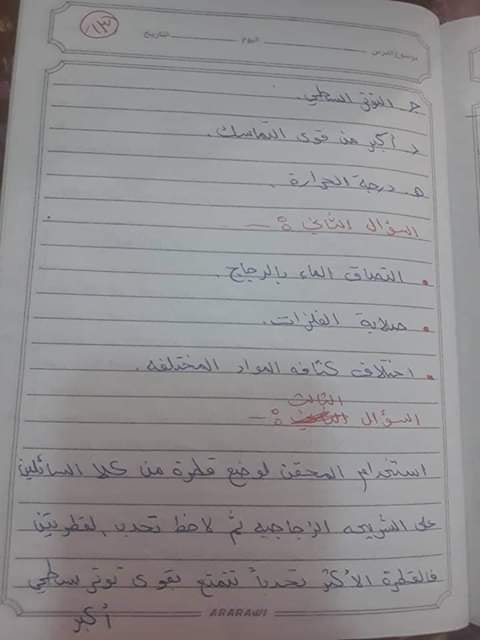 ١٣
موضوع الدرس اليوم التاريخ
ج. التوتر السطحي.
د. أكبر من قوى التماسك.
هـ. درجة الحرارة.
السؤال الثاني :-
• التصاق الماء بالزجاج.
• صلابة الفلزات.
• اختلاف كثافه المواد المختلفه.
الثالث
السؤال :-
استخدام المحقن لوضع قطرة من كلا السائلين
على الشريحه الزجاجيه ثم لاحظ تحدب القطرتين
فالقطرة الأكثر تحدباً تتمتع بقوى توتر سطحي
أكبر
ARARAWI